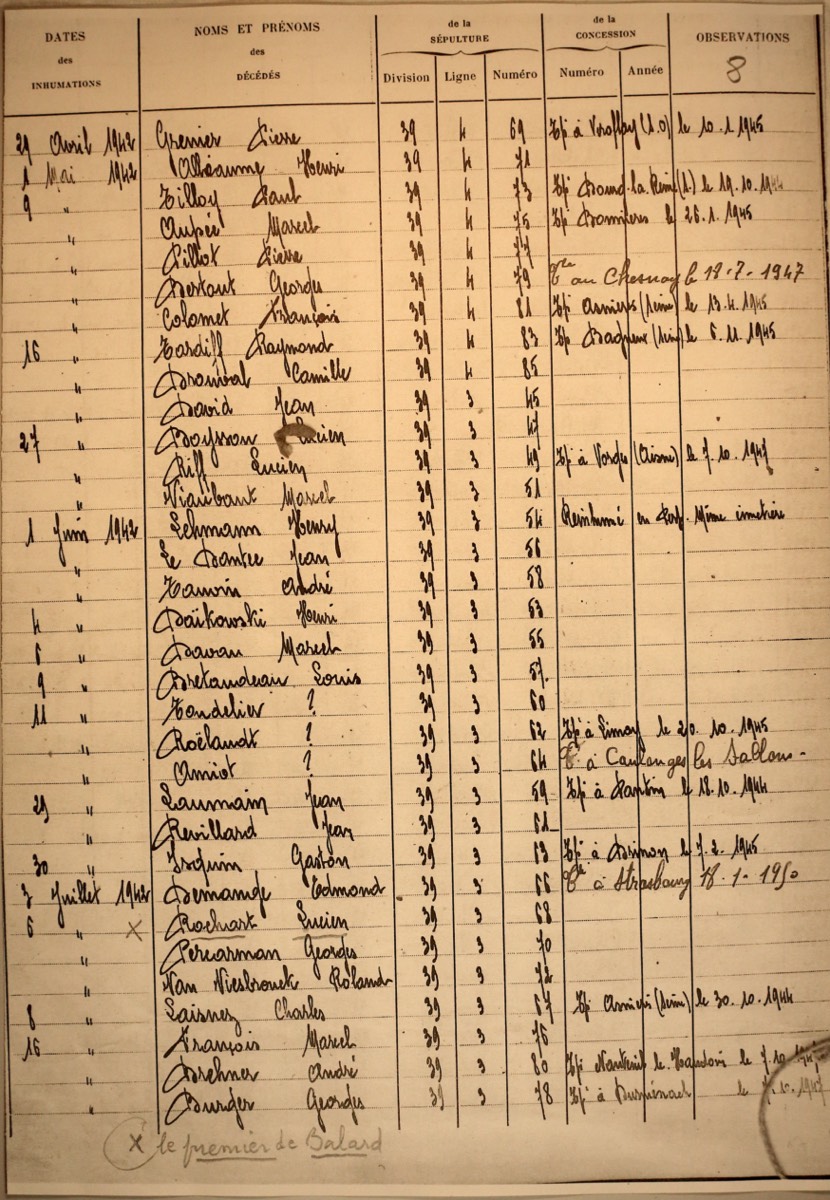 DATES des INHUMATIONS | NOMS ET PRÉNOMS des DÉCÉDÉS | de la SÉPULTURE | de la CONCESSION | OBSERVATIONS 8
Division | Ligne | Numéro | Numéro | Année
29 Avril 1942 Grenier Pierre 39 4 69 à (S.O) le 10.1.1945
1 Mai 1942 Alléaume Henri 39 4 71
9 " Tilloy Paul 39 4 73 la Reine (S.) le 19.10.1944
" Aupée Marcel 39 4 75 le 26.1.1945
" Pillot Pierre 39 4 77
" Bertaut Georges 39 4 79 au Chesnay le 18-7-1947
" Colomet François 39 4 81 Asnières (Seine) le 13.4.1945
16 " Tardiff Raymond 39 4 83 Bagneux (Seine) le 6.11.1945
" Camille 39 4 85
" David Jean 39 3 45
27 " Boysson Lucien 39 3 47
" Riff Lucien 39 3 49 à Vorges (Aisne) le 7.10.1947
" Marcel 39 3 51
1 Juin 1942 Lehmann Henry 39 3 54 Réinhumé en Même cimetière
" Le Dantec Jean 39 3 56
" André 39 3 58
4 " Daïkowski Henri 39 3 53
6 " Davau Marcel 39 3 55
9 " Bretaudeau Louis 39 3 57.
11 " Tondelier ? 39 3 60
" Roëlandt ? 39 3 62 à Limay le 20.10.1945
" Amiot ? 39 3 64 à Coulonges les Sablons -
29 " Laumain Jean 39 3 59 à Pantin le 18.10.1944
" Revillard Jean 39 3 61
30 " Isquin Gaston 39 3 63 à le 7.2.1945
3 Juillet 1942 Demange Edmond 39 3 66 à Strasbourg 18-1-1950
6 " X Rochart Lucien 39 3 68
" Percarman Georges 39 3 70
" Van Niesbrouck Roland 39 3 72
8 " Laisney Charles 39 3 67 Asnières (Seine) le 30.10.1944
16 " François Marcel 39 3 76
" Brehner André 39 3 80 Nanteuil le Haudoin le 7.10
" Burger Georges 39 3 78 à le
X le premier de Balard